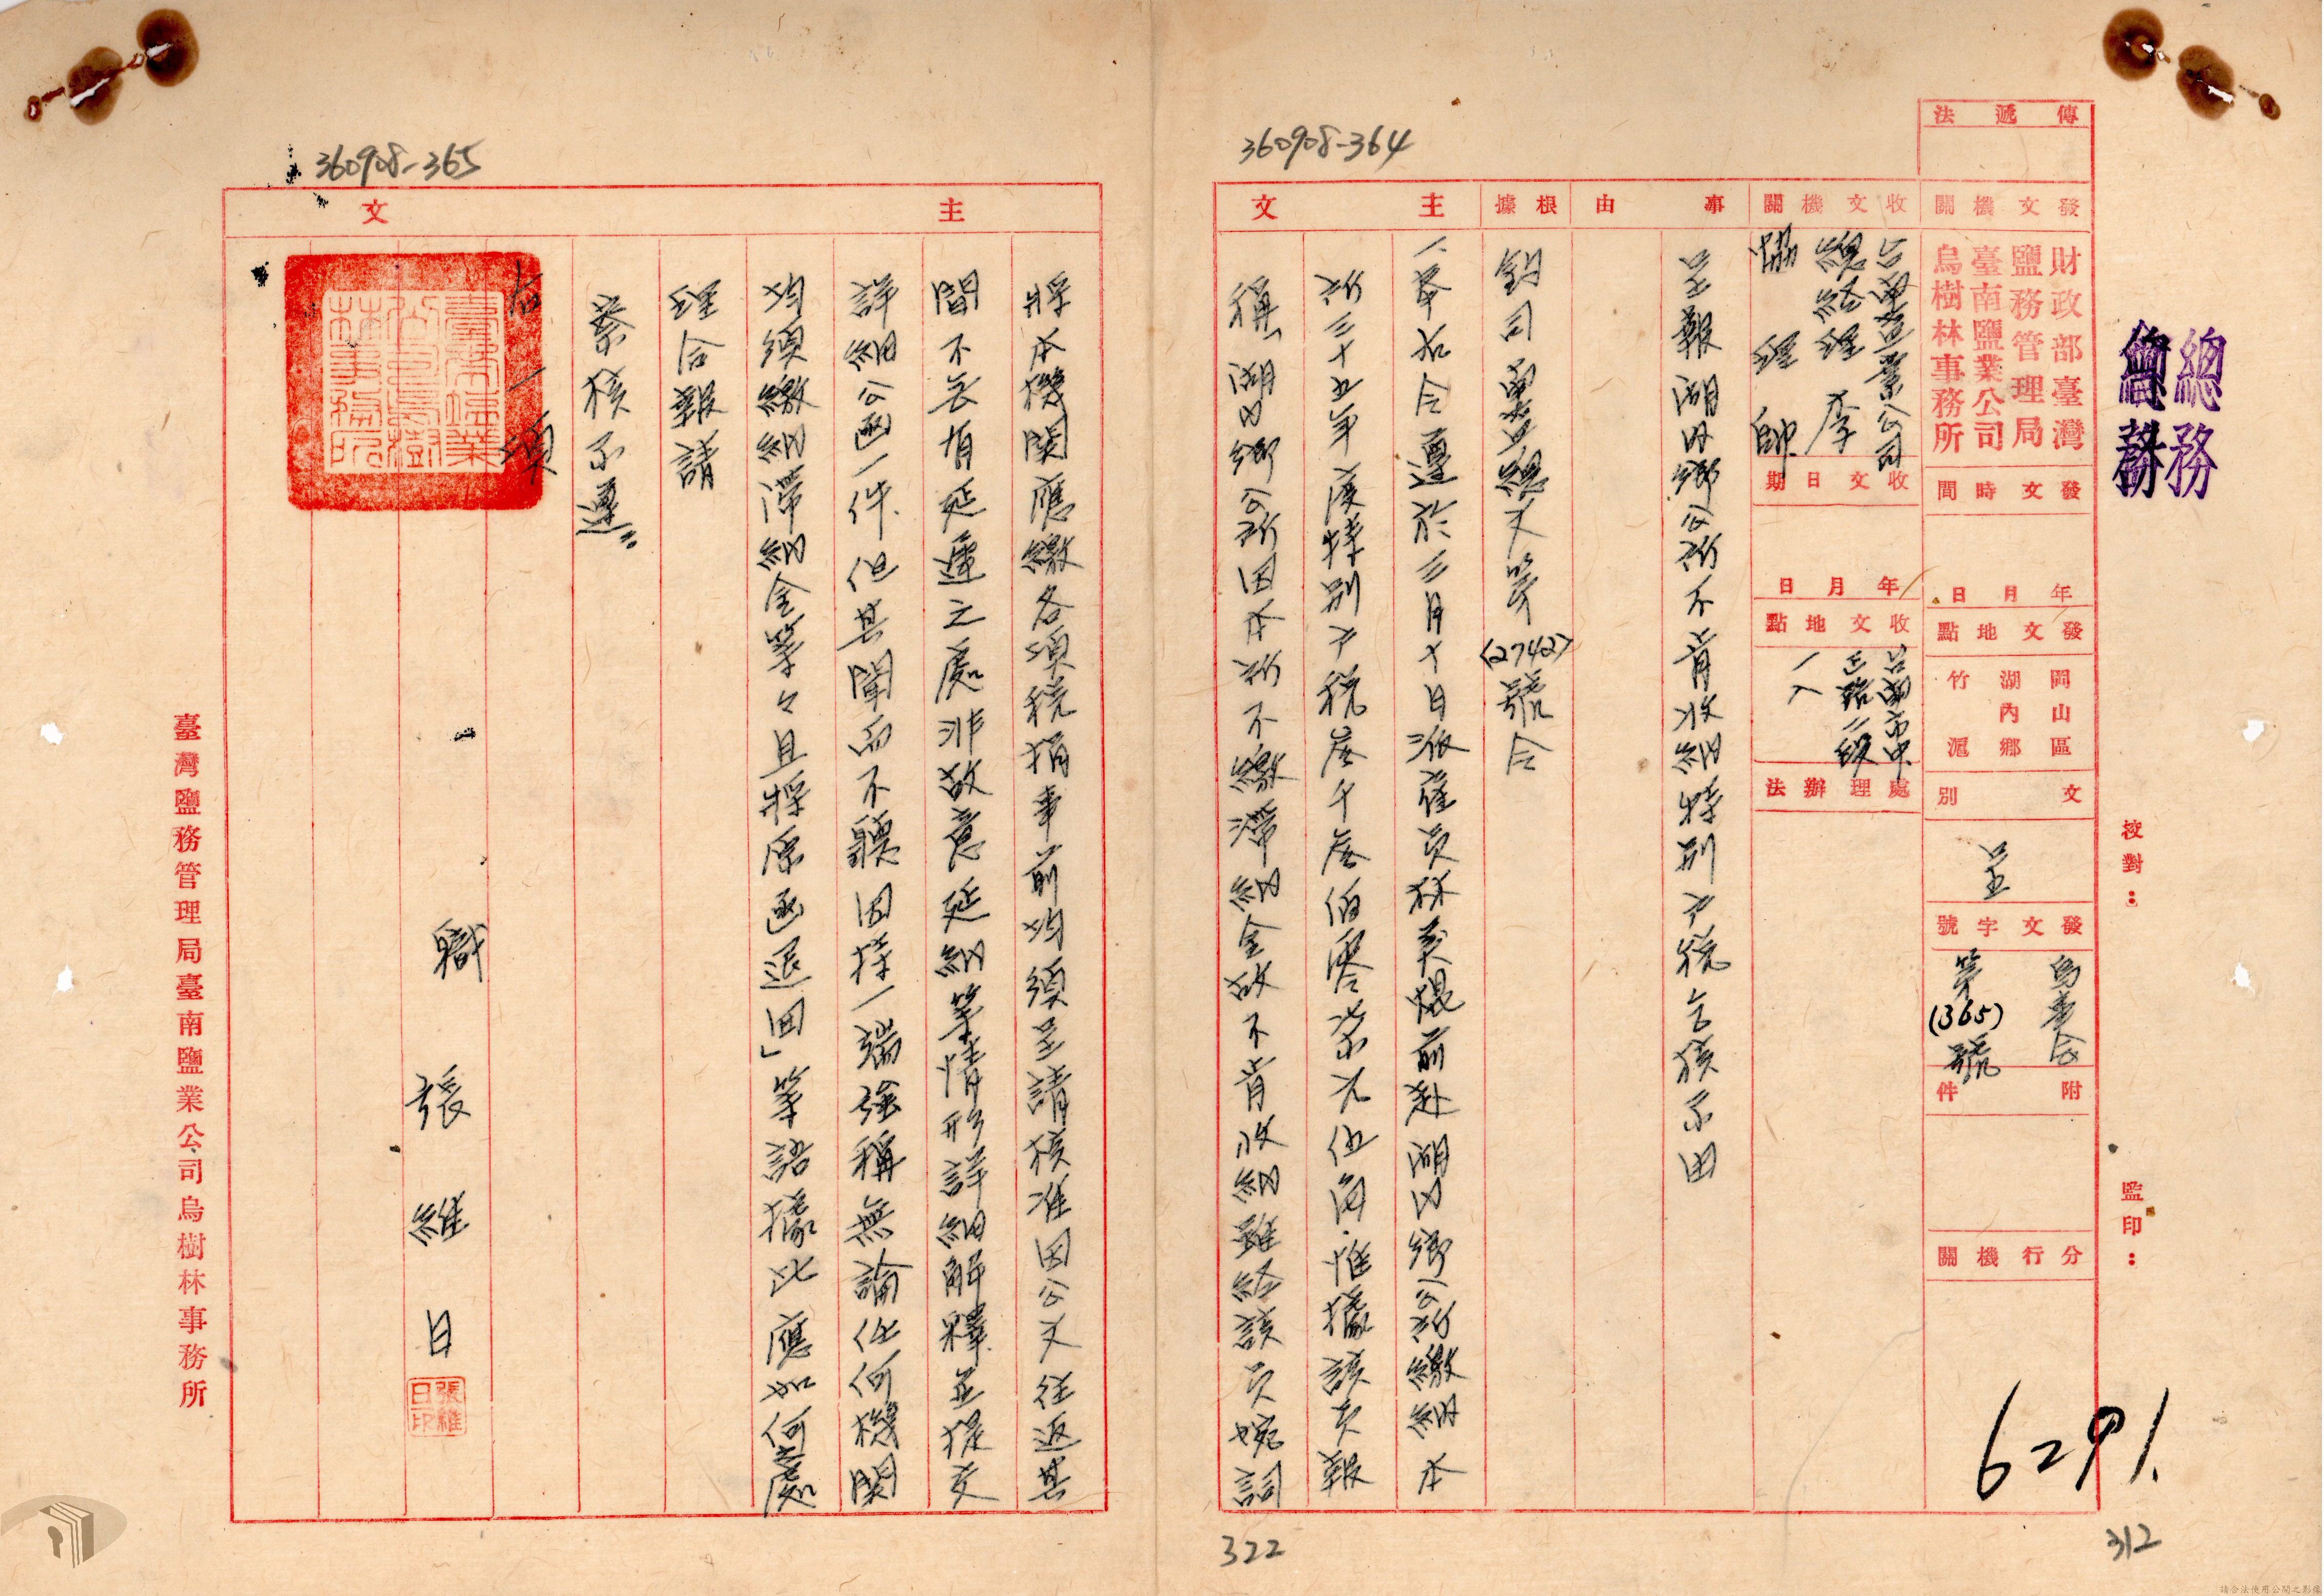 360908-364
總務
總務
校對：
監印：
6291.
312
傳遞法
發文機關
財政部臺灣
鹽務管理局
臺南鹽業公司
烏樹林事務所
發文時間
年月日
發文地點
岡山區
湖內鄉
竹滬
文別
呈
發文字號
第(365)號
附件
分行機關
收文機關
台南鹽業公司
總經理 李
協理 帥
收文日期
年月日
收文地點
台南市中
正路二段
處理辦法
事由
呈報湖內鄉公所不肯收納特別戶稅乞核示由
根據
鈞司南鹽總文第(2742)號令
主文
一、奉右令遵於三月十日派雇員林義焜前赴湖內鄉公所繳納本
所三十五年度特別戶稅叁千叁佰零柒元伍角.惟據該員報
稱「湖內鄉公所因本所不繳滯納金故不肯收納雖經該員婉詞
322
360908-365
主文
將本機關應繳各項稅捐事前均須呈請核准因公文往返其
間不無有延遲之處非故意延納等情形詳細解釋並提交
詳細公函一件.但其闡而不聽因持一端強稱無論任何機關
均須繳納滯納金等々且將原函退回」等語據此應如何處
理合報請
察核示遵
右一項
臺南鹽業公司烏樹林事務所
職 張維日
張維日印
臺灣鹽務管理局臺南鹽業公司烏樹林事務所
請合法使用公開之影像